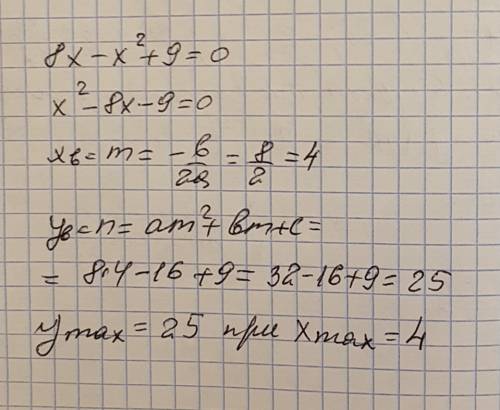 8x - x² + 9 = 0
x² - 8x - 9 = 0
xв = m = -в/2a = 8/2 = 4
yв = n = am² + вm + c =
= 8·4 - 16 + 9 = 32 - 16 + 9 = 25
ymax = 25 при xmax = 4